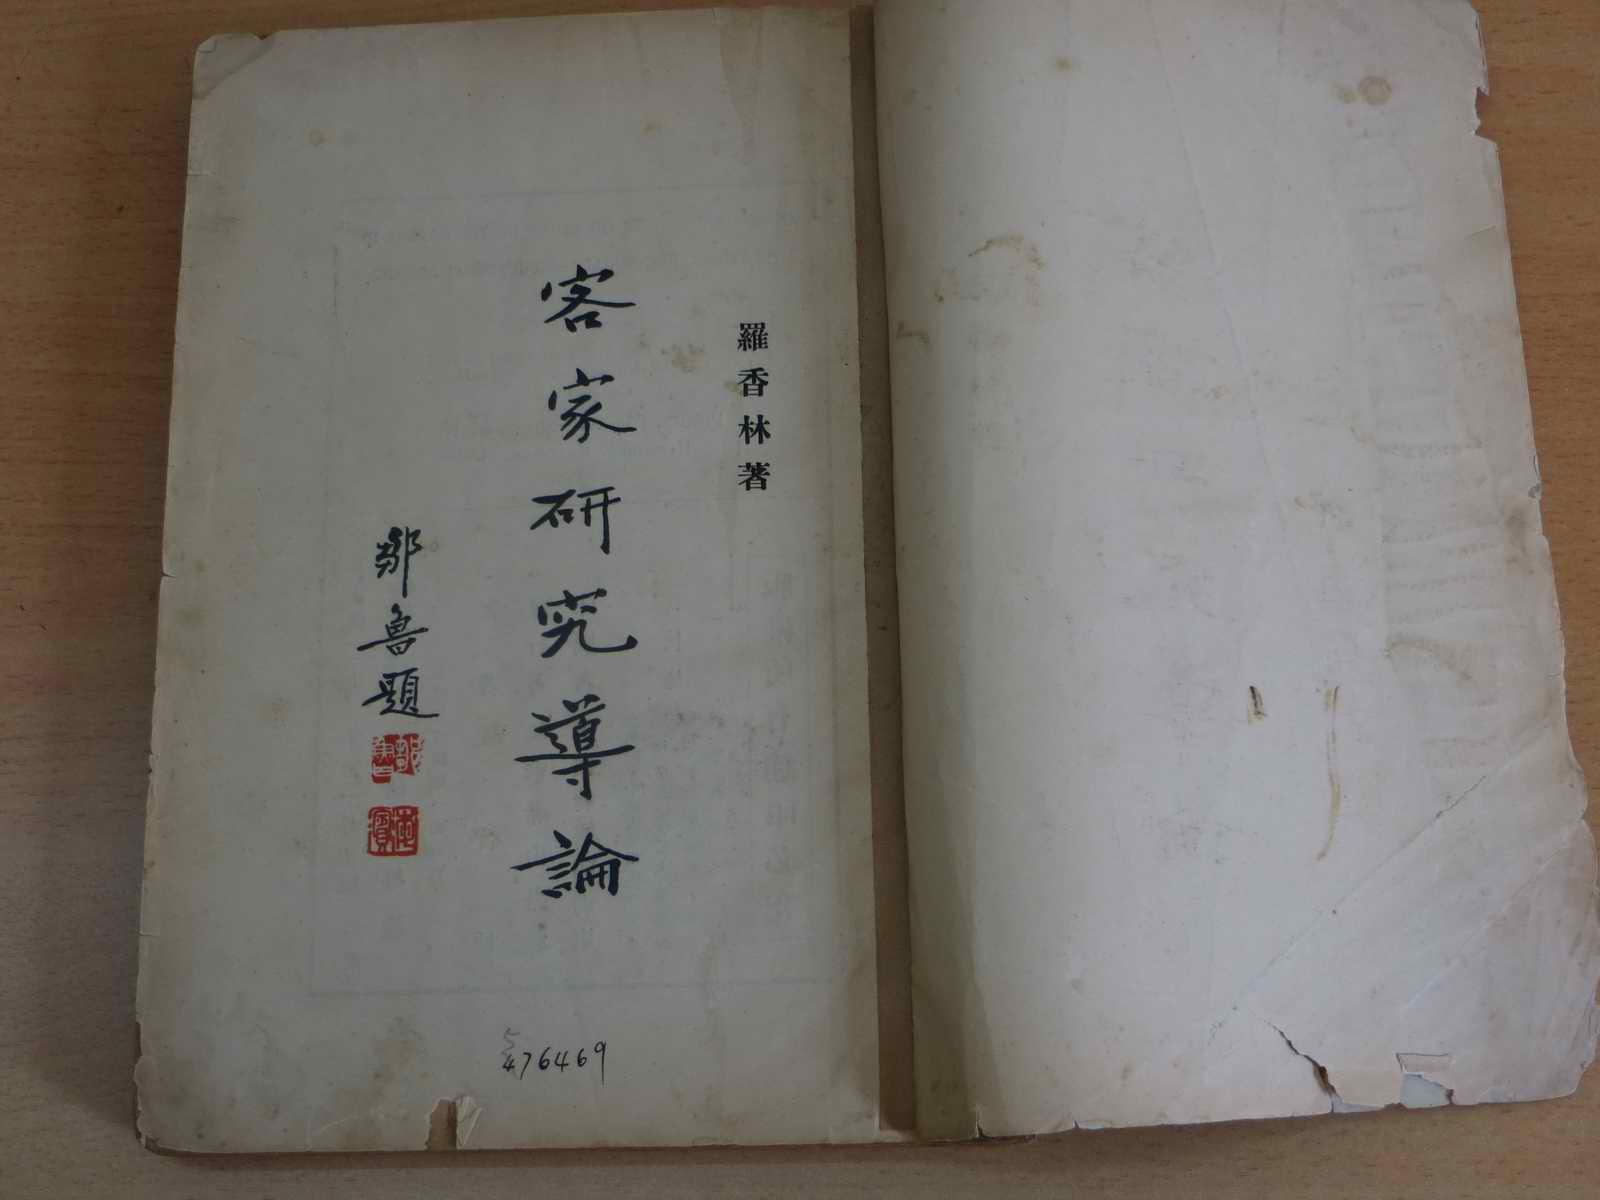 羅香林著
客家研究導論
鄒魯題
鄒魯
海濱
476469